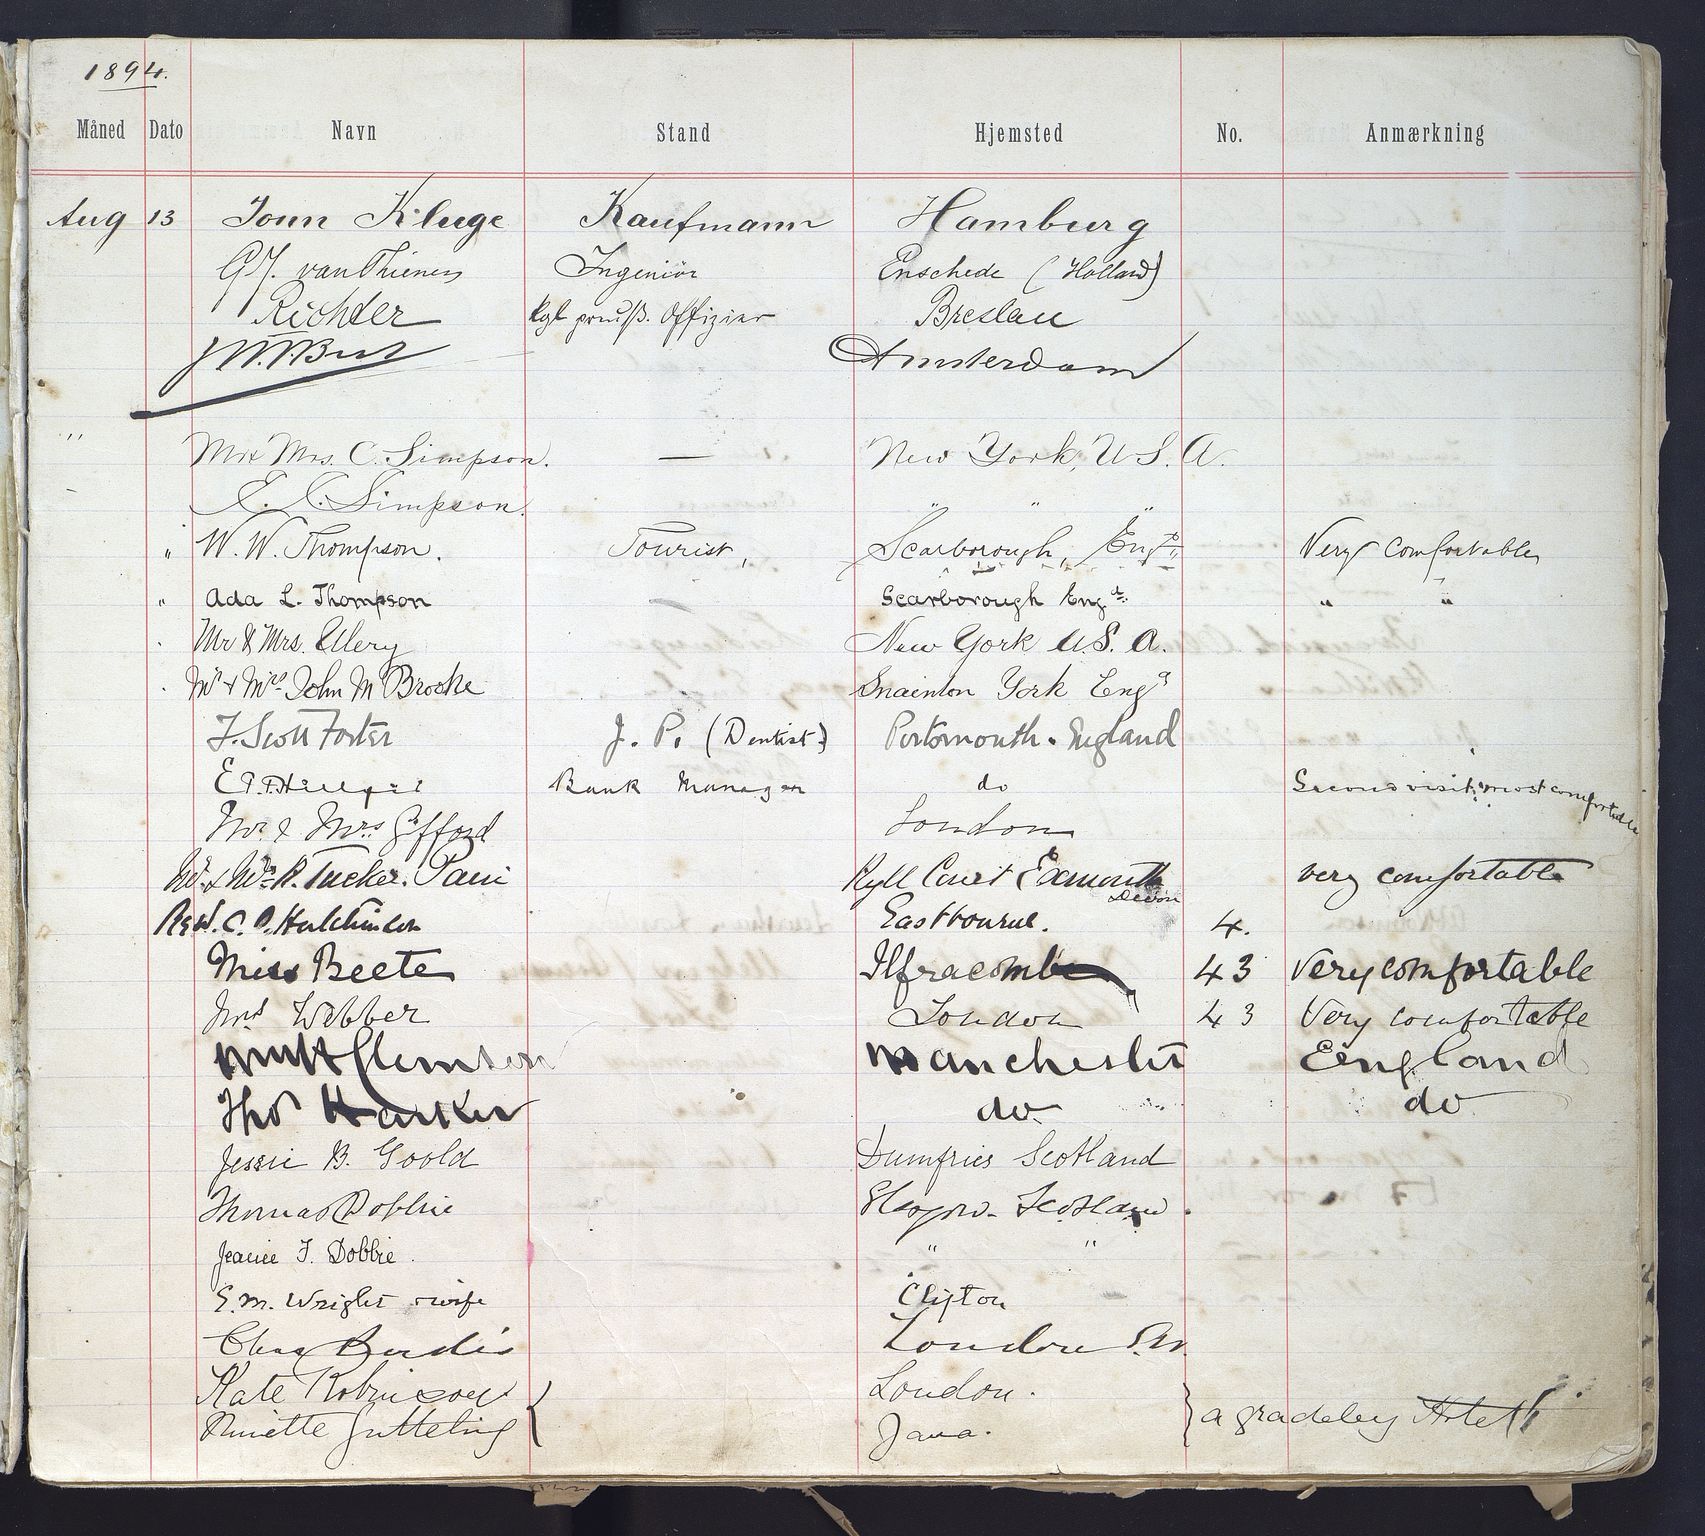 1894.
Måned Dato Navn Stand Hjemsted No. Anmærkning
Aug 13 John Kluge Kaufmann Hamburg
G.J. van Thienen Ingeniör Enschede (Holland)
Richter Kgl preuß. Offizier Breslau
Amsterdam
" Mr & Mrs. C. Simpson. — New York, U.S.A.
E. C. Simpson. " " "
" W. W. Thompson. Tourist, Scarborough, Engd. Very Comfortable
" Ada L. Thompson — Scarborough Engd. " "
Mr & Mrs. Ullery New York U.S.A.
Mr & Mrs John M Brooke Snainton York Engd
F. Scott Foster J. P. (Dentist) Portsmouth. England
Bank Manager do Second visit, most comfortable
Mr & Mrs Gifford London
Mr. & Mrs R. Tucker. Court Exmouth Devon very comfortable
Revd. C. P. Hutchinson Eastbourne. 4.
Miss Beete Ilfracombe 43 Very comfortable
Mrs Webber London 43 Very comfortable
Manchester England
Thos Harker do do
Jessie B. Goold Dumfries Scotland
Thomas Dobbie Glasgow. Scotland.
Jeanie T. Dobbie. " "
E. M. Wright & wife Clifton
Chas London
Kate Robinson London.
Ninette Gutteling Java. a gradeley Hotel